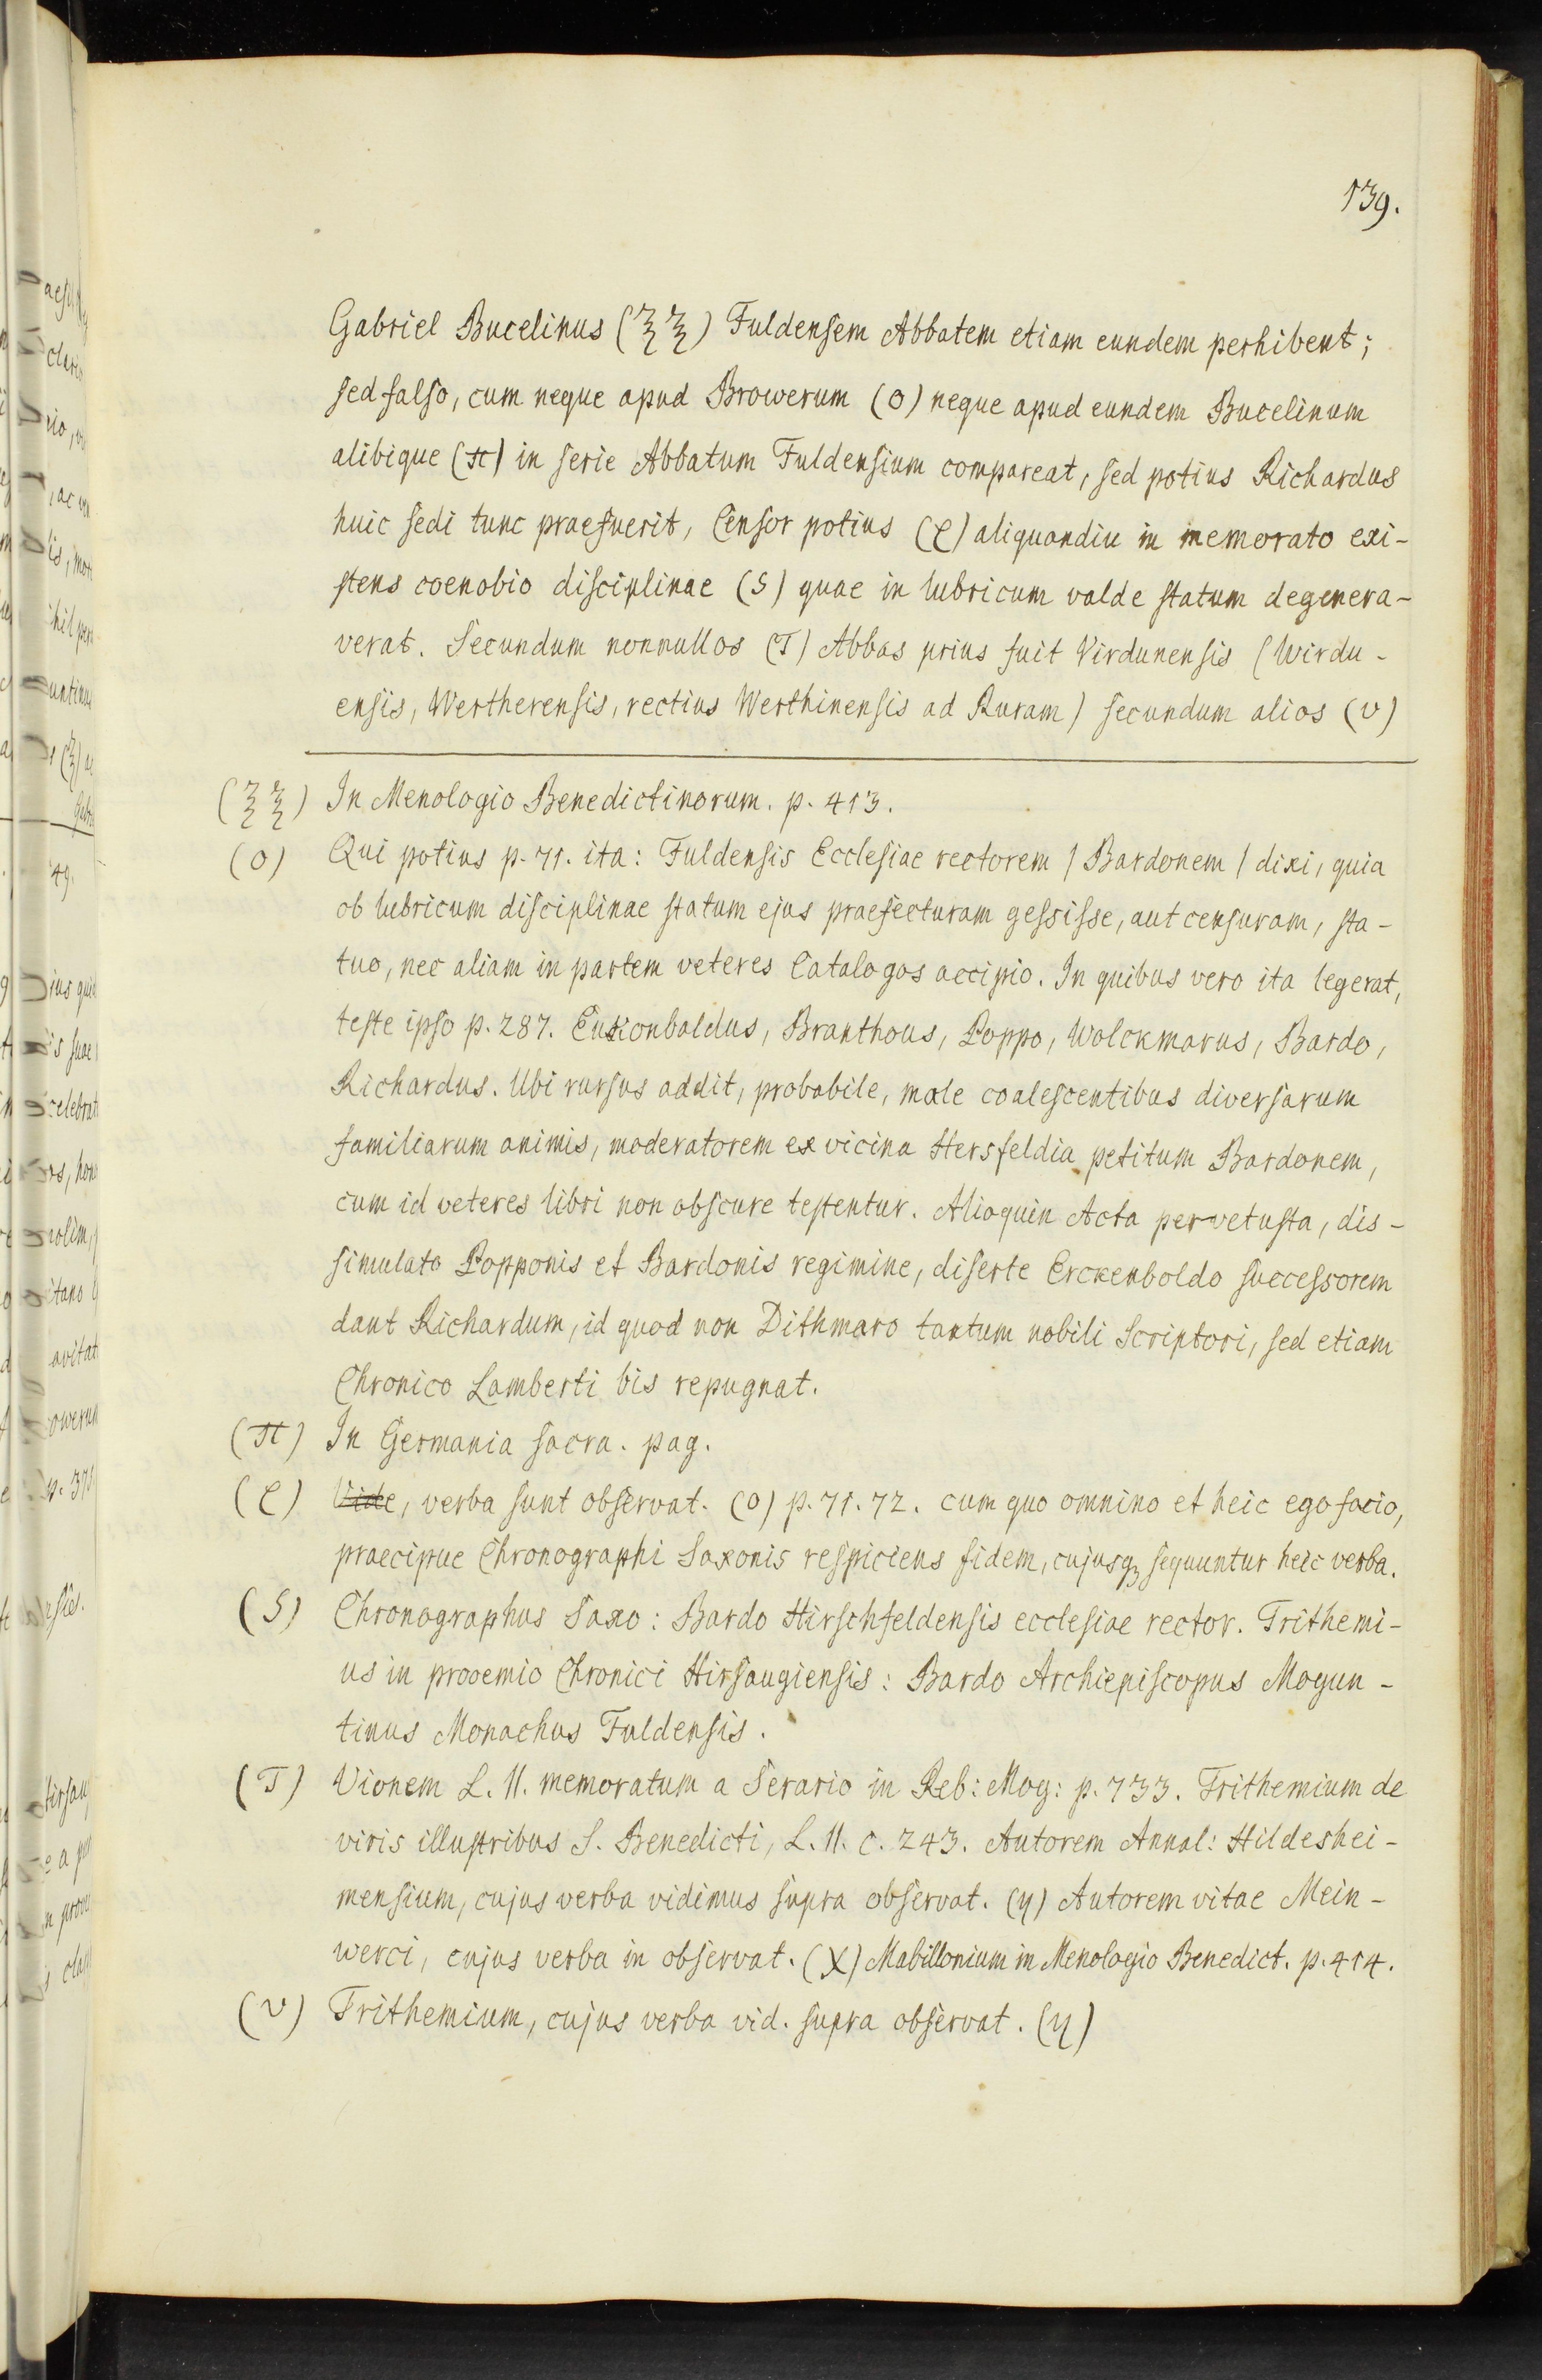 139.
Gabriel Bucelinus (ξξ) Fuldensem Abbatem etiam eundem perhibent;
sed falso, cum neque apud Browerum (ο) neque apud eundem Bucelinum
alibique (π) in serie Abbatum Fuldensium compareat, sed potius Richardus
huic sedi tunc praefuerit, Censor potius (ρ) aliquandiu in memorato exi-
stens coenobio disciplinae (S) quae in lubricum valde statum degenera-
verat. Secundum nonnullos (T) Abbas prius fuit Virdunensis (Wirdu-
ensis, Wertherensis, rectius Werthinensis ad Ruram) secundum alios (υ)
(ξξ) In Menologio Benedictinorum. p. 413.
(ο) Qui potius p. 71. ita: Fuldensis Ecclesiae rectorem / Bardonem / dixi, quia
ob lubricum disciplinae statum ejus praefecturam gessisse, aut censuram, sta-
tuo, nec aliam in partem veteres Catalogos accipio. In quibus vero ita legerat,
teste ipso p. 287. Branthous, Poppo, Wolckmarus, Bardo,
Richardus. Ubi rursus addit, probabile, male coalescentibus diversarum
familiarum animis, moderatorem ex vicina Hersfeldia petitum Bardonem,
cum id veteres libri non obscure testentur. Alioquin Acta pervetusta, dis-
simulato Popponis et Bardonis regimine, diserte Erckenboldo successorem
dant Richardum, id quod non Dithmaro tantum nobili Scriptori, sed etiam
Chronico Lamberti bis repugnat.
(π) In Germania sacra. pag.
(ρ) Vide, verba sunt observat. (ο) p. 71. 72. cum quo omnino et heic ego facio,
praecipue Chronographi Saxonis respiciens fidem, cujusq; sequuntur heic verba.
(S) Chronographus Saxo: Bardo Hirschfeldensis ecclesiae rector. Trithemi-
us in prooemio Chronici Hirsaugiensis: Bardo Archiepiscopus Mogun-
tinus Monachus Fuldensis.
(T) Vionem L. II. memoratum a Serario in Reb: Mog: p. 733. Trithemium de
viris illustribus S. Benedicti, L. II. c. 243. Autorem Annal: Hildeshei-
mensium, cujus verba vidimus supra observat. (η) Autorem vitae Mein-
werci, cujus verba in observat. (χ) Mabillonium in Menologio Benedict. p. 414.
(υ) Trithemium, cujus verba vid. supra observat. (η)